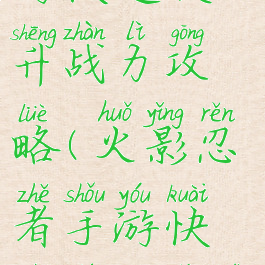 shēng zhàn lì gōng
升战力攻
lüè huǒ yǐng rěn
略(火影忍
zhě shǒu yóu kuài
者手游快